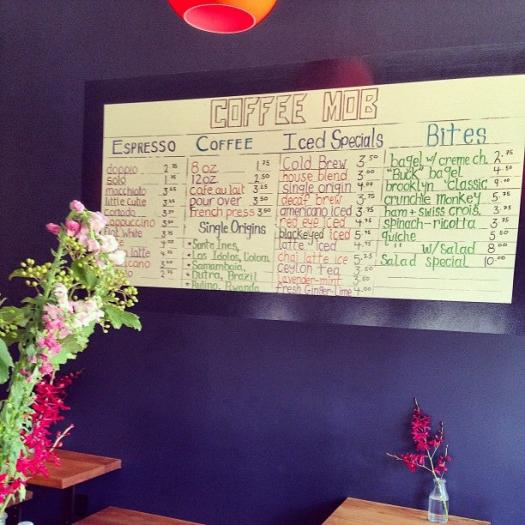 COFFEE MOB
ESPRESSO
doppio 2.75
solo
macchiato 3.25
little cutie
cortado
cappuccino
flat white
latte
COFFEE
8 oz 1.75
12oz 2.50
cafe au lait 3.25
pour over 3.50
french press 3.50
Single Origins
Santa Ines,
Los Idolos, Colom.
Samambaia,
Dutra, Brazil
Rulino, Rwanda
Iced Specials
Cold Brew 3.50
house blend 3.00
single origin 4.00
decaf brew 3.75
americano iced 3.75
red eye iced 4.75
blackeyed iced 5.75
latte iced 4.75
chai latte ice 5.25
Ceylon tea 3.50
lavender-mint 3.50
fresh Ginger-Lime 4.00
Bites
bagel w/ creme ch. 2.75
"Buck" bagel 4.50
brooklyn classic 9.00
crunchie monkey 5.75
ham + swiss crois. 3.75
spinach-ricotta 3.75
quiche 5.00
" w/Salad 8.00
Salad special 10.00